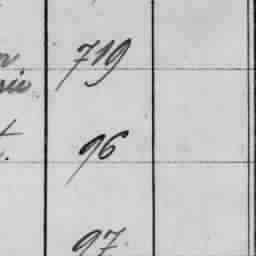 719
96
97.